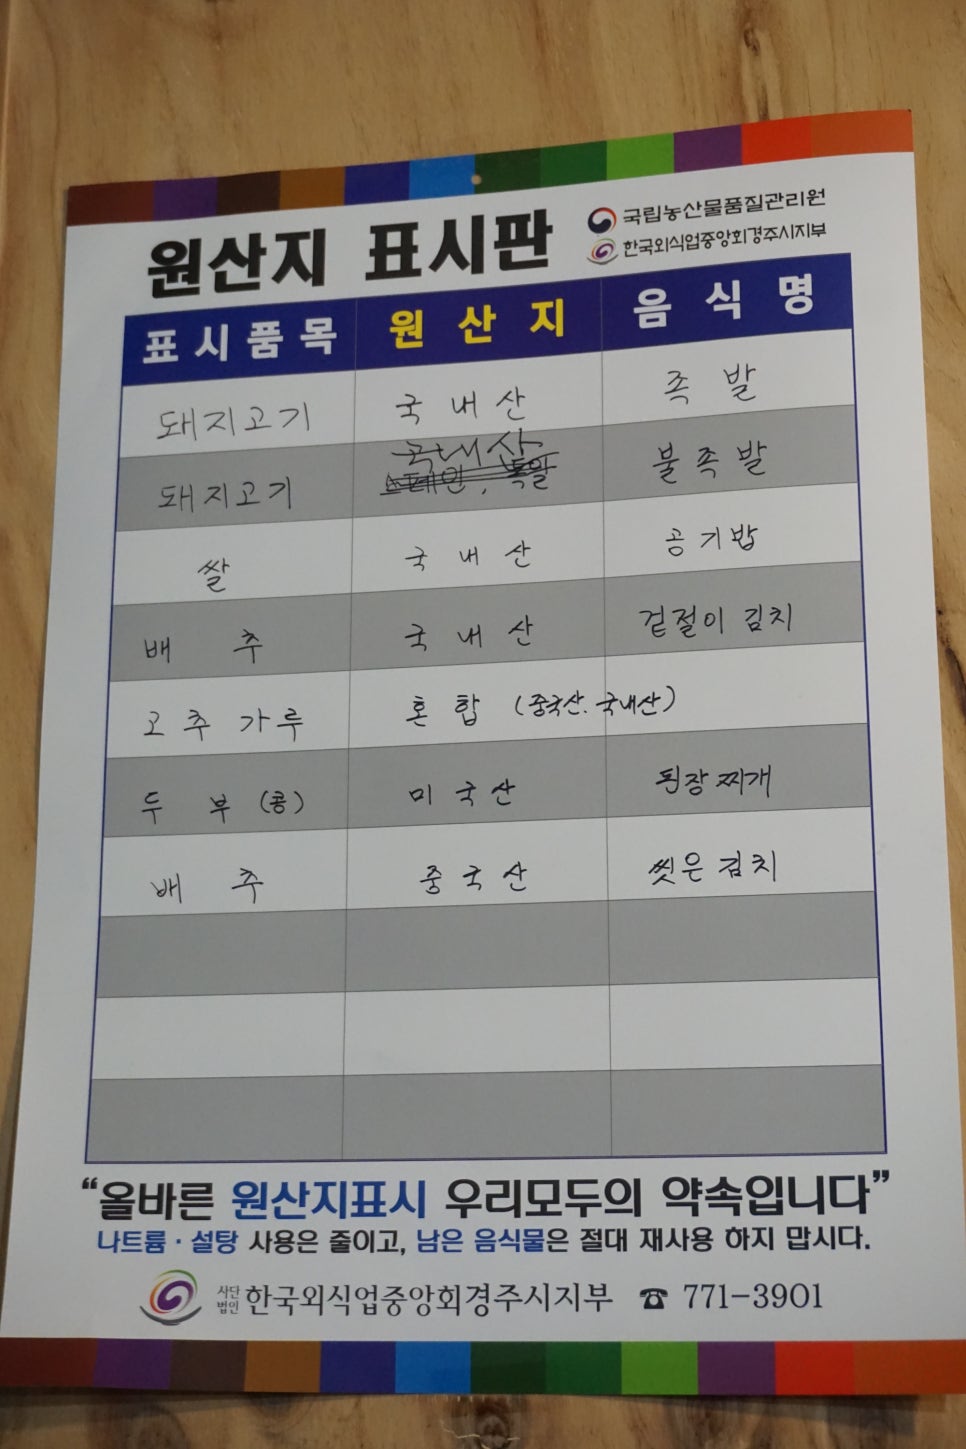 원산지 표시판
국립농산물품질관리원
한국외식업중앙회경주시지부
표시품목 원산지 음식명
돼지고기 국내산 족발
국내산
돼지고기 스페인, 독일 불족발
쌀 국내산 공기밥
배추 국내산 겉절이 김치
고추가루 혼합 (중국산.국내산)
두부(콩) 미국산 된장찌개
배추 중국산 씻은김치
“올바른 원산지표시 우리모두의 약속입니다”
나트륨·설탕 사용은 줄이고, 남은 음식물은 절대 재사용 하지 맙시다.
사단법인 한국외식업중앙회경주시지부 ☎ 771-3901